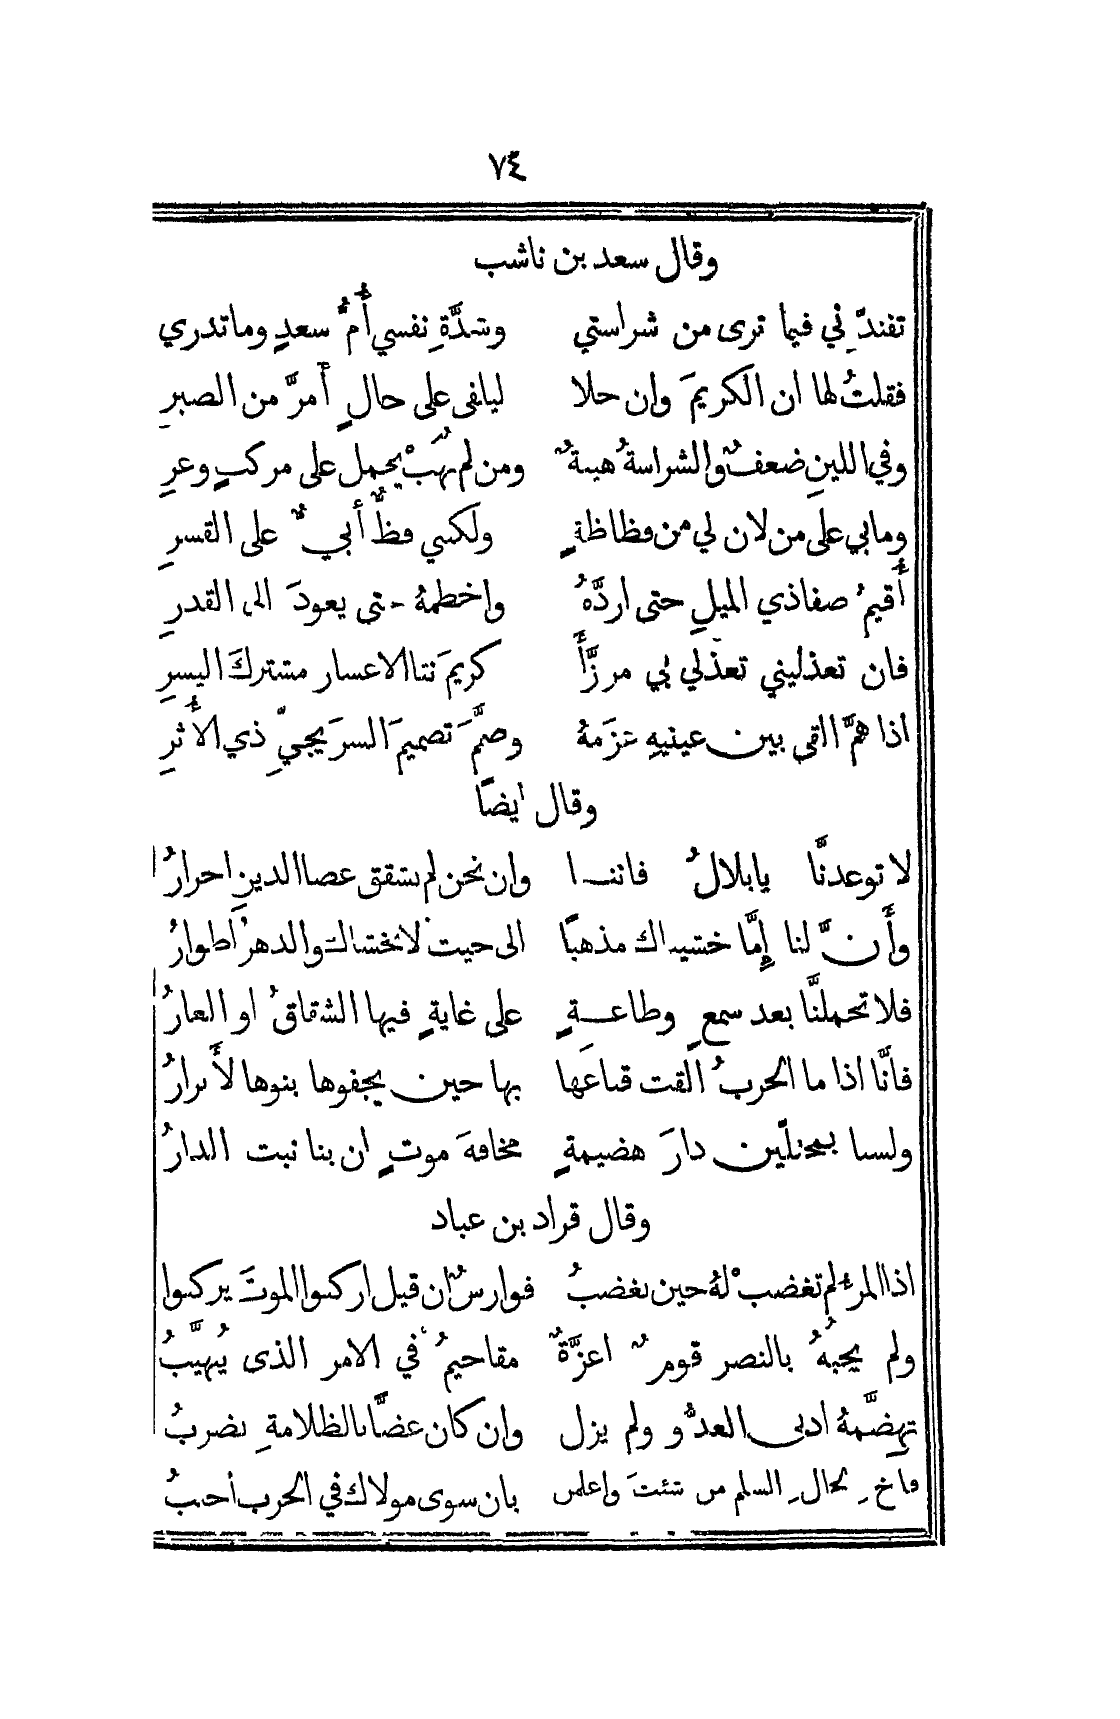 ٧٤
وقال سعد بن ناشب
تفنّدني فيما ترى من شراستي وشدَّةِ نفسي أُمُّ سعدٍ وما تدري
فقلتُ لها ان الكريمَ وان حلا ليلفى على حالٍ أمرَّ من الصبرِ
وفي اللينِ ضعفٌ والشراسةُ هيبةٌ ومن لم يُهَبْ يحمل على مركبٍ وعرِ
وما بي على من لان لي من فظاظةٍ ولكنني فظٌّ أبيٌّ على القسرِ
أُقيمُ صفا ذي الميلِ حتى اردَّهُ واخطمهُ حتى يعودَ الى القدرِ
فان تعذليني تعذلي بي مرزَّأً كريمَ نثا الاعسار مشتركَ اليسرِ
اذا همَّ القى بين عينيهِ عزمهُ وصمَّمَ تصميمَ السريجيِّ ذي الأُثرِ
وقال ايضًا
لا توعدنَّا يا بلالُ فاننا وان نحن لم نشقق عصا الدينِ احرارُ
وأَنَّ لنا إِمَّا خشيناك مذهبًا الى حيث لا نخشاك والدهرُ أطوارُ
فلا تحملنَّا بعد سمعٍ وطاعةٍ على غايةٍ فيها الشقاقُ او العارُ
فانَّا اذا ما الحربُ القت قناعها بها حين يجفوها بنوها لأَبرارُ
ولسنا بمحتلّين دارَ هضيمةٍ مخافةَ موتٍ ان بنا نبت الدارُ
وقال قراد بن عباد
اذا المرءُ لم تغضبْ لهُ حين يغضبُ فوارسٌ ان قيل اركبوا الموتَ يركبوا
ولم يحبُهُ بالنصر قومٌ اعزَّةٌ مقاحيمُ في الامر الذي يُتهيَّبُ
تهضَّمهُ أدنى العدوّ ولم يزل وان كان عضًّا بالظلامةِ يضربُ
فاخِ لحالِ السلم من شئتَ واعلمن بان سوى مولاك في الحرب أجنبُ